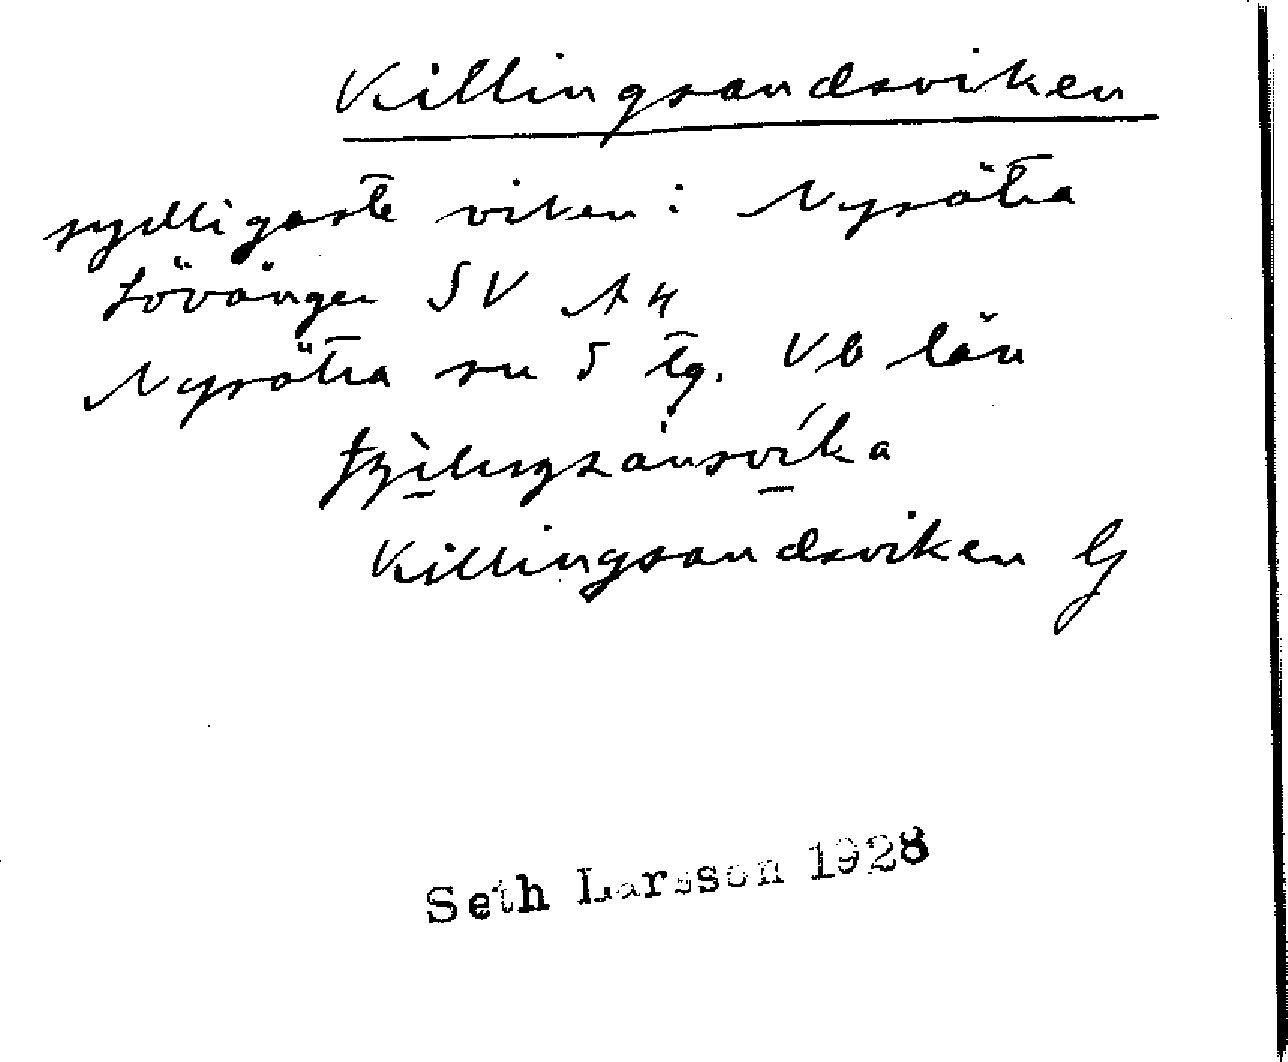 Killingsandsviken
sydligaste viken i Nysätra
Lövånger SV A4
Nysätra sn 5 tg. Vb län
Killingsandsviken G
Seth Larsson 1928